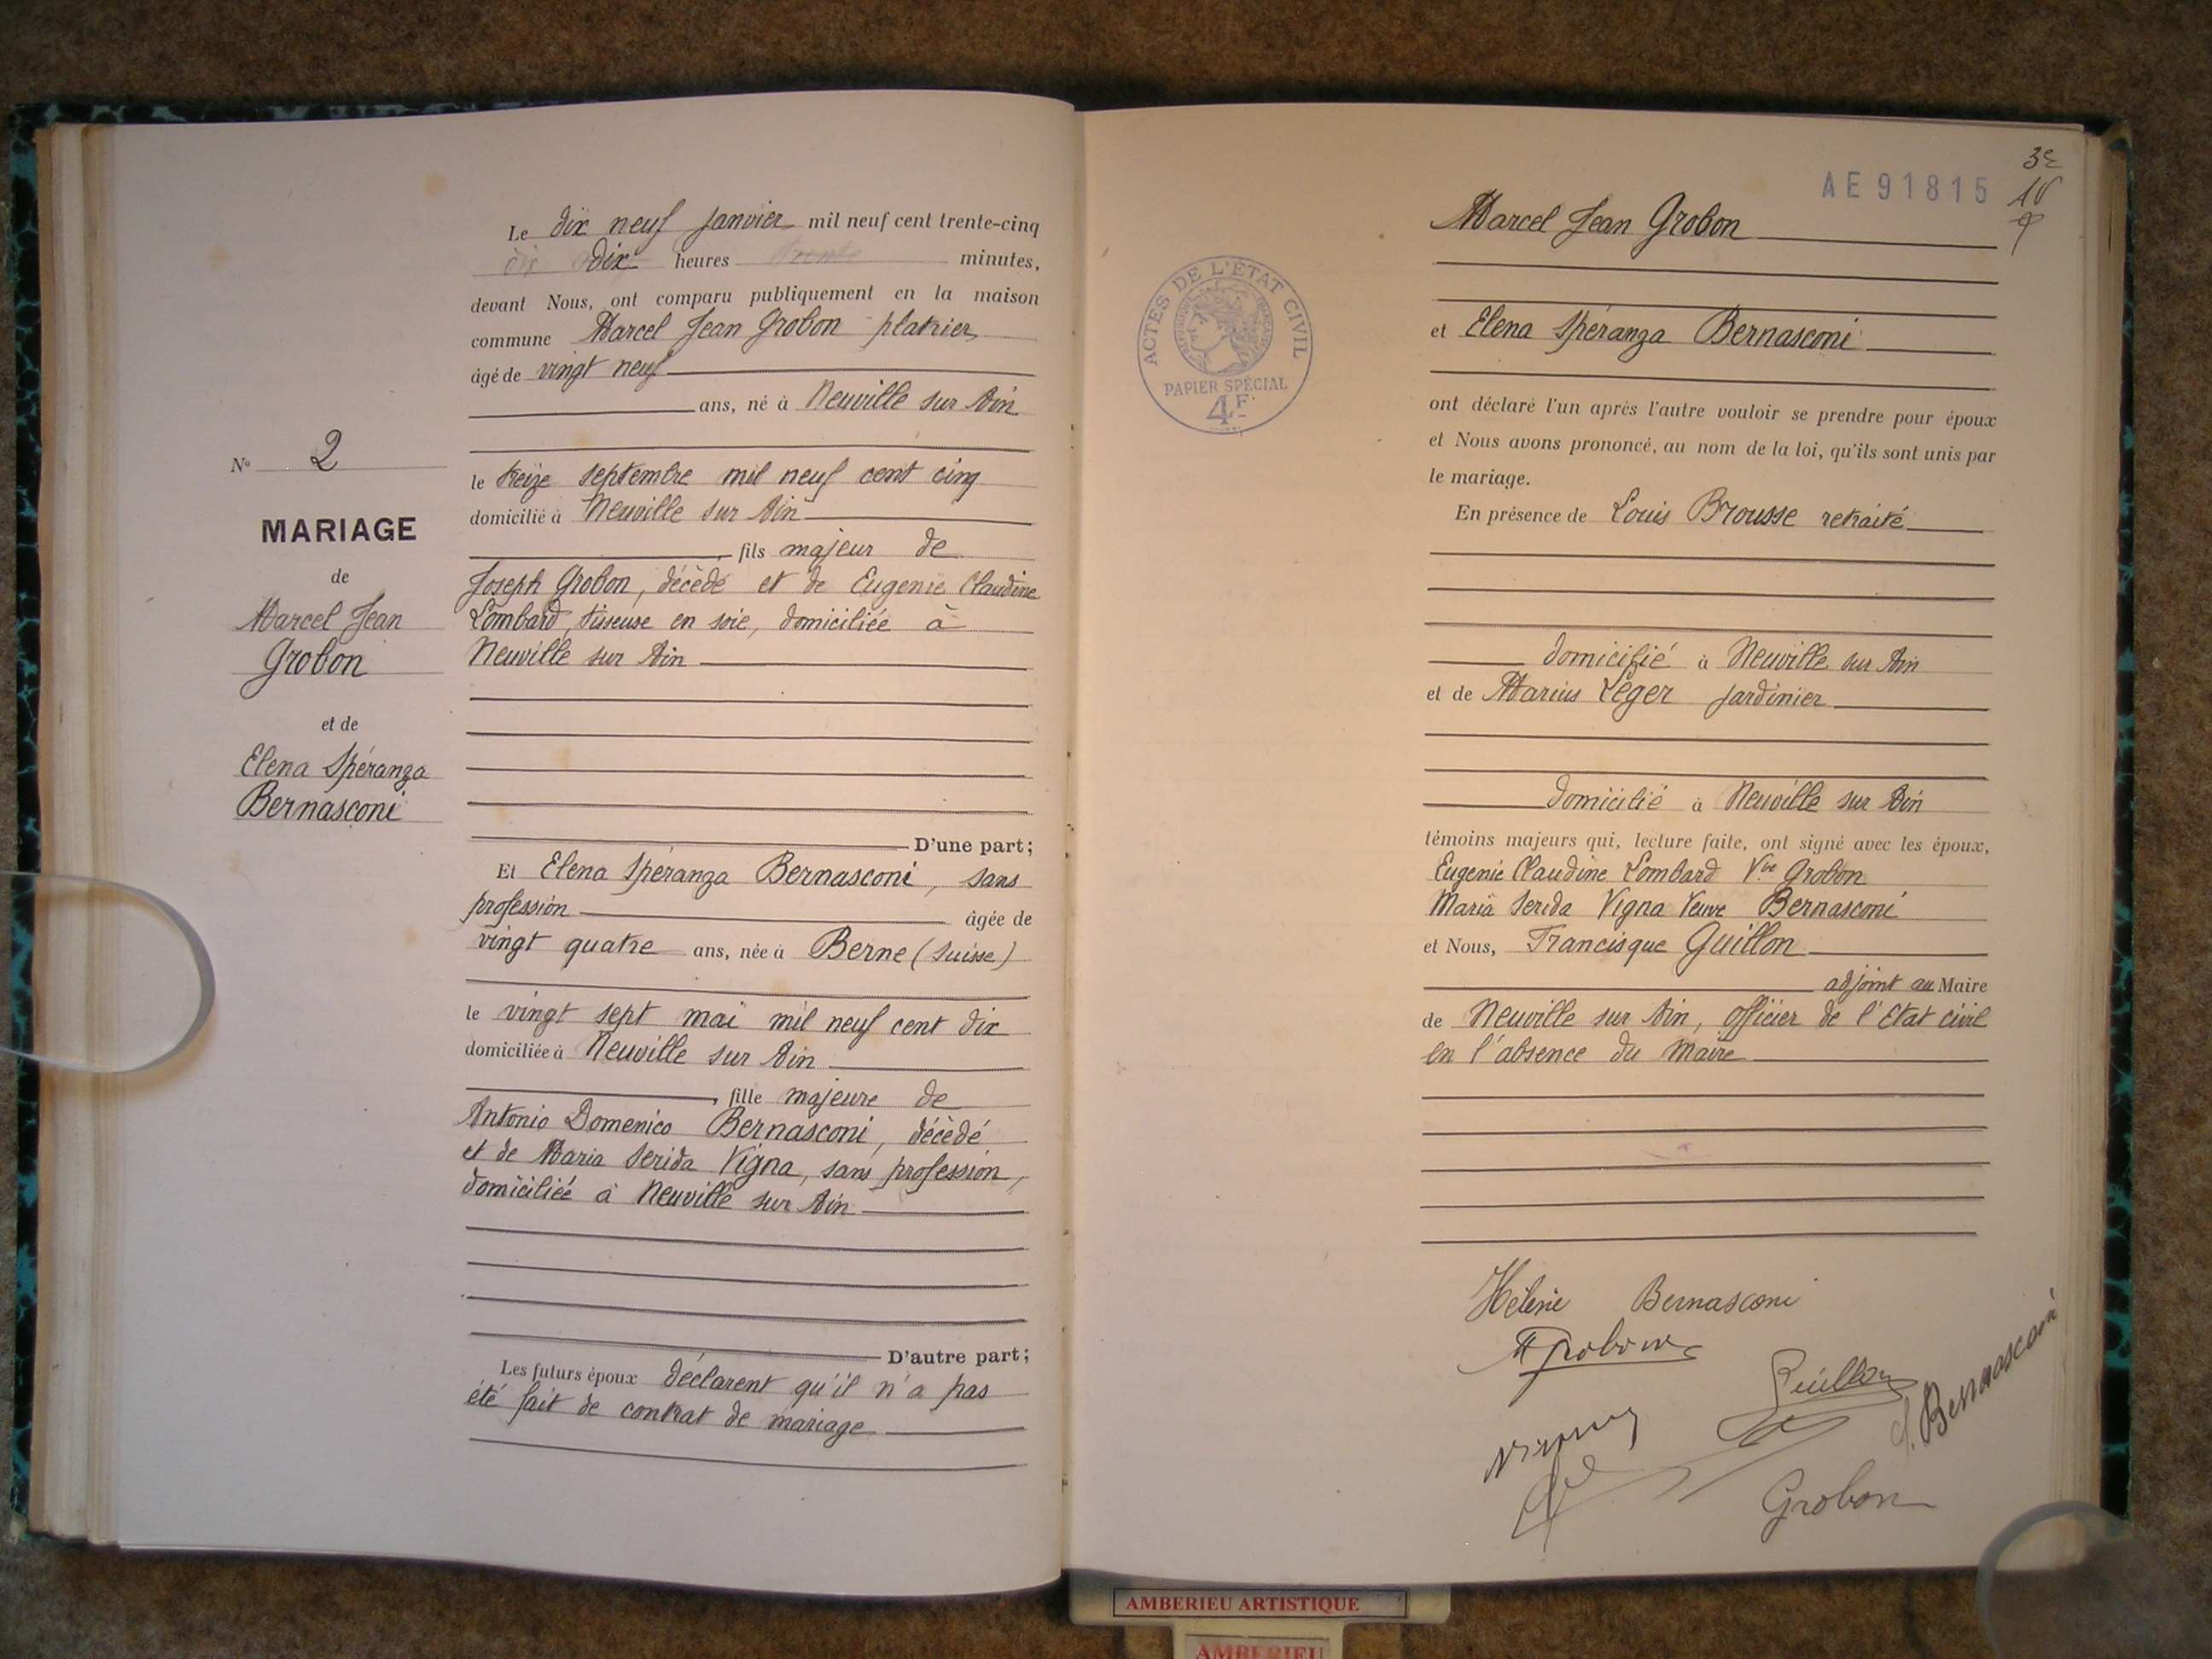 Le dix neuf janvier mil neuf cent trente-cinq
dix heures minutes,
devant Nous, ont comparu publiquement en la maison
commune Marcel Jean Grobon platrier
âgé de vingt neuf
ans, né à Neuville sur Ain
le treize septembre mil neuf cent cinq
domicilié à Neuville sur Ain
fils majeur de
Joseph Grobon, décédé et de Eugenie Claudine
Lombard, tisseuse en soie, domiciliée à
Neuville sur Ain
D'une part;
Et Elena Spéranza Bernasconi, sans
profession âgée de
vingt quatre ans, née à Berne (Suisse)
le vingt sept mai mil neuf cent dix
domiciliée à Neuville sur Ain
fille majeure de
Antonio Domenico Bernasconi, décédé
et de Maria Serida Vigna, sans profession,
domiciliée à Neuville sur Ain
D'autre part;
Les futurs époux déclarent qu'il n'a pas
été fait de contrat de mariage
N° 2
MARIAGE
de
Marcel Jean
Grobon
et de
Elena Spéranza
Bernasconi
AE91815
ACTES DE L'ETAT CIVIL
REPUBLIQUE FRANÇAISE
PAPIER SPÉCIAL
4F.
Marcel Jean Grobon
et Elena Spéranza Bernasconi
ont déclaré l'un après l'autre vouloir se prendre pour époux
et Nous avons prononcé, au nom de la loi, qu'ils sont unis par
le mariage.
En présence de Louis Brousse retraité
domicilié à Neuville sur Ain
et de Marius Léger jardinier
domicilié à Neuville sur Ain
témoins majeurs qui, lecture faite, ont signé avec les époux,
Eugenie Claudine Lombard Vve Grobon
Maria Serida Vigna Veuve Bernasconi
et Nous, Francisque Guillon
adjoint au Maire
de Neuville sur Ain, officier de l'Etat civil
en l'absence du Maire
Hélène Bernasconi
Grobon
Guillon
S. Bernasconi
Grobon
AMBERIEU ARTISTIQUE
AMBERIEU